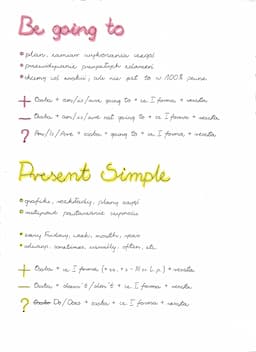 Be going to
• plan, zamiar wykonania czegoś
• przewidywanie przyszłych zdarzeń
• chcemy coś zrobić, ale nie jest to w 100% pewne
+ Osoba + am/is/are going to + cz. I forma + reszta
− Osoba + am/is/are not going to + cz. I forma + reszta
? Am/Is/Are + osoba + going to + cz. I forma + reszta
Present Simple
• grafiki, rozkłady, plany zajęć
• rutynowe
• every Friday, week, month, year
• always, sometimes, usually, often, etc
+ Osoba + cz. I forma (+es, +s - III os. l.p.) + reszta
− Osoba + doesn't/don't + cz. I forma + reszta
? Do/Does + osoba + cz. I forma + reszta